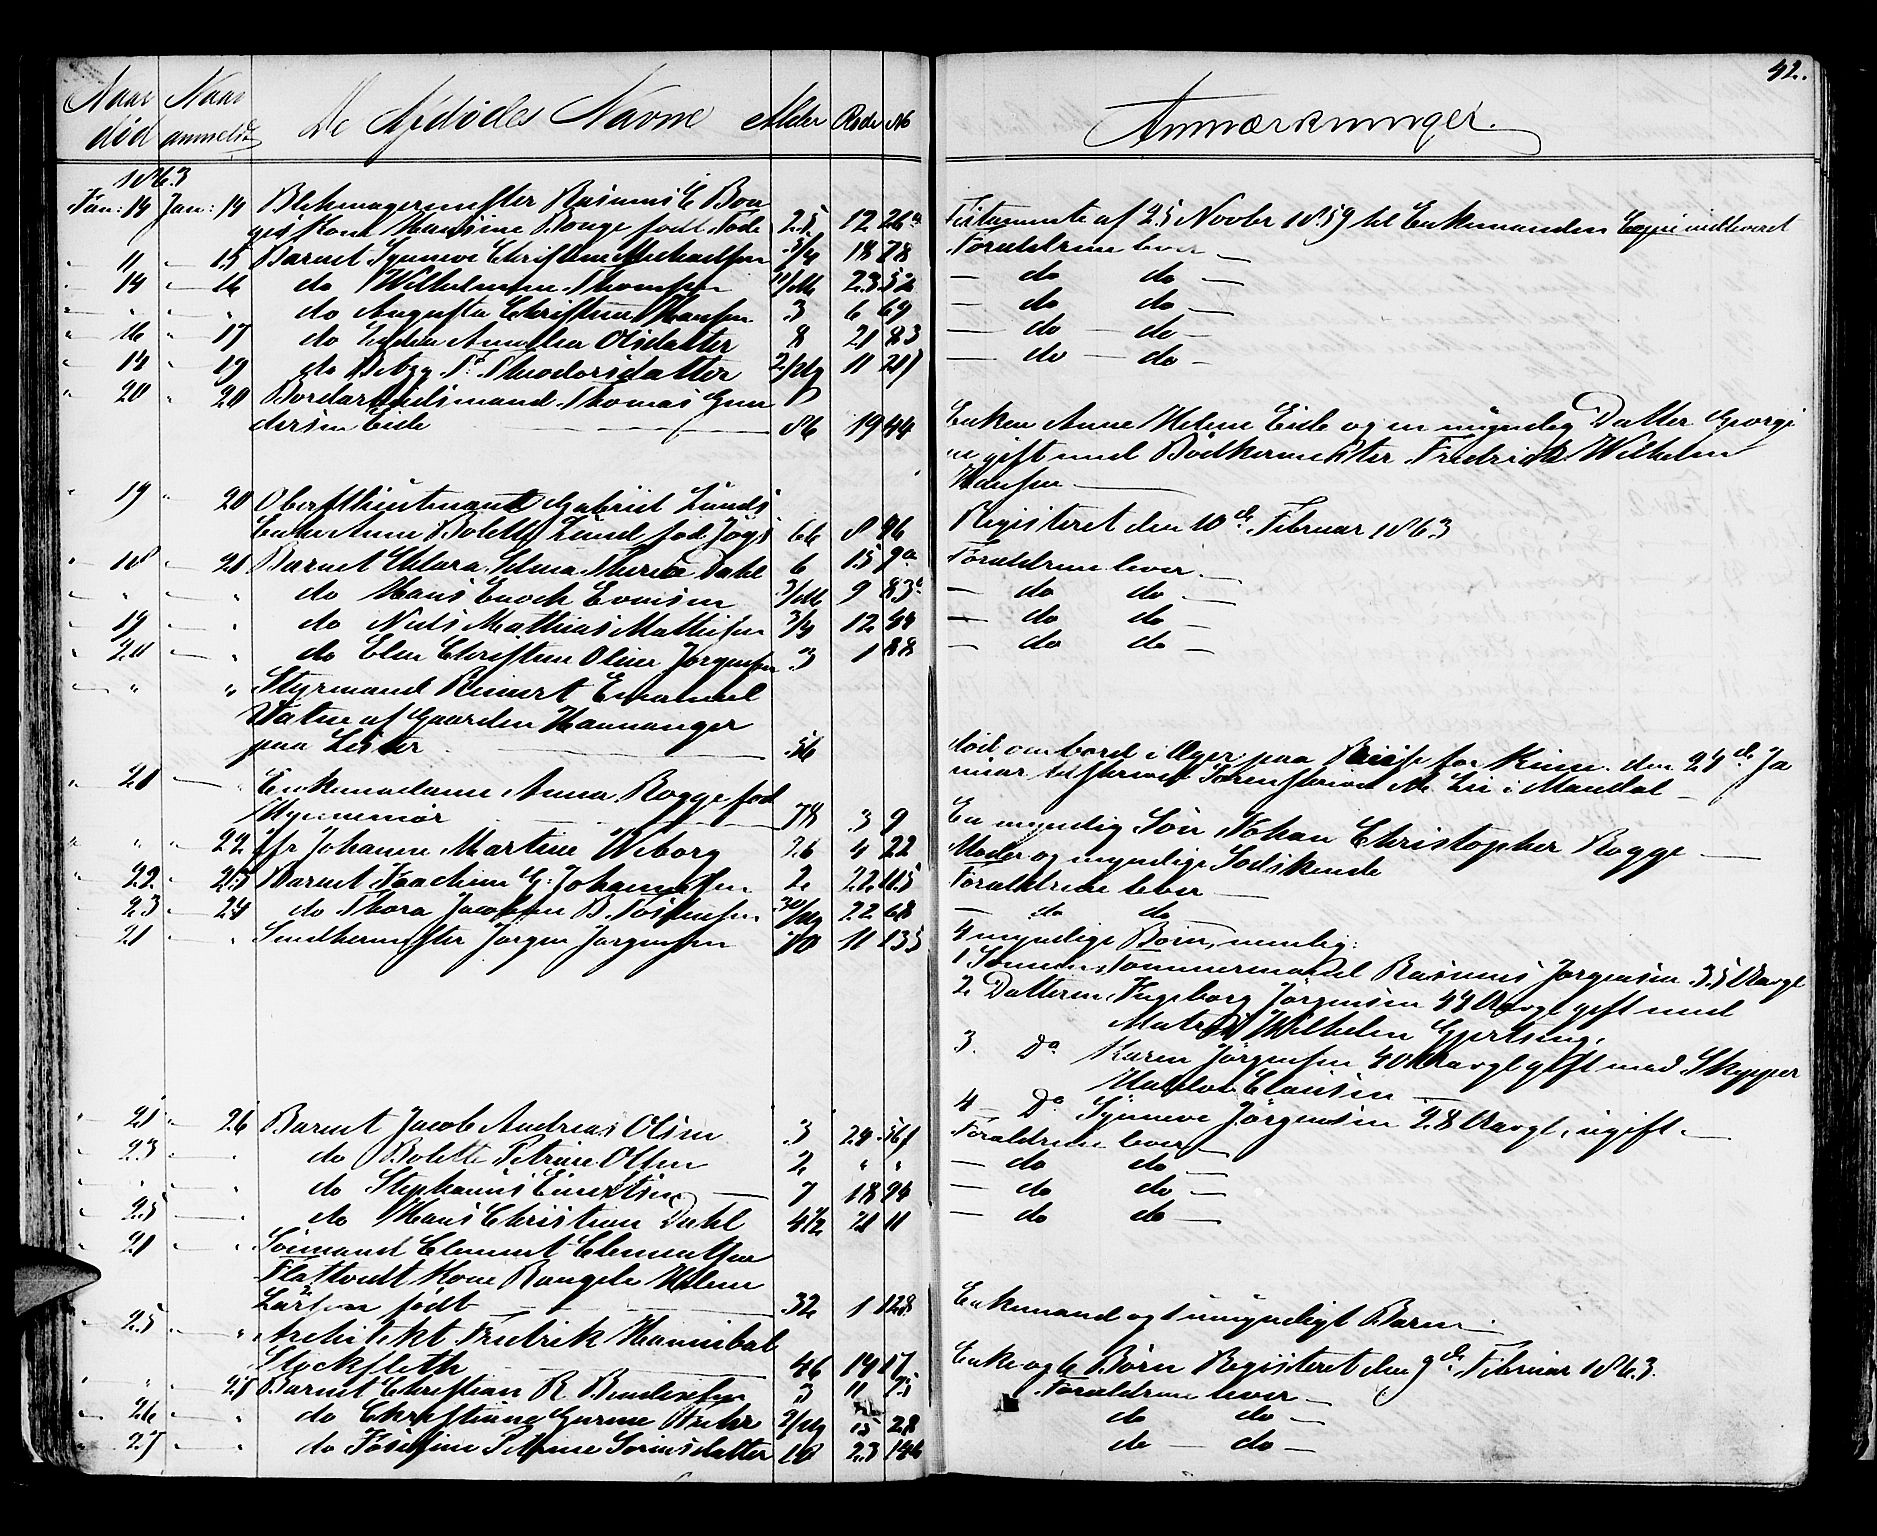 42.
Naar død Naar anmeldt De Afdødes Navne Alder Rode No Anmærkninger.
1863
Jan: 14 Jan: 14 Rasmus E Bou
Kone Hansine Bouge født 25 12 Testamente af 25 Novbr 1859 til Enkemanden Copie indleveret
" 11 — 15 Barnet Synneve Christine Michaelsen 3/4 18 78 Forældrene lever —
" 14 — 16 do Wilhelmine Thomsen 11/M 23 52 — do do —
" — " do Augusta Christine Hansen 3 6 69 — do do —
" 16 " 17 do Amalia Olsdatter 8 21 83 — do — do —
" 14 — 19 do Betzy T. Theodorsdatter 11 — do — do —
" 20 " 20 Bordarbeidsmand Thomas Gun
dersen Eide — 86 19 44 Enken Anne Helene Eide og en myndig Datter Georgi
ne gift med Bødkermester Fredrick Wilhelm
Hansen —
" 19 " 20 Oberstlieutenant Gabriel Lunds
Enke Anne Bolette Lund fød 66 8 86 Registeret den 10de Februar 1863
" 18 " 21 Barnet Clara Selma Dahl 6 15 9a Forældrene lever —
" " " do Hans Enoch Evensen 3/M 9 83 — do do —
" 19 — " do Niels Mathias Mathisen 3/4 12 — do do —
" 20 — " do Elen Christine Oline Jørgensen 3 1 88 — do do —
— " " Styrmand Reinert Emanuel
Vatne af Gaarden Hananger
paa Lister — 56 død ombord i Æger paa Reise for Rime den 24de Ja
nuar Li i Mandal —
" 21 — " Enkemadame Anna Rogge fød
— 78 3 9 En myndig Søn Johan Christopher Rogge —
" " " 22 Jfr Johanne Martine Wiborg 26 4 22 Moder og myndige Sødskende
" 22 — 23 Barnet Joachim G. Johannesen 2 22 115 Forældrene lever —
" 23 — 24 do Thora Jacobine B. 30/dg 22 68 — do do —
" 21 — " Jørgen Jørgensen 70 11 135 4 myndige Børn, nemlig:
1 Sønnen, Tømmermand Rasmus Jørgensen 35 Aargl
2 Datteren, Ingeborg Jørgensen 44 Aargl gift med
Matros Wilhelm Gjertsen,
3. Do Karen Jørgensen 40 Aargl gift med Skipper
Clausen —
4 — Do Synneve Jørgensen 28 Aargl, ugift —
" 21 " 26 Barnet Jacob Andreas Olsen 3 24 Forældrene lever —
" 23 — " do Bolette Petrine Olsen 2 " " — do do —
" — " do Stephanus Einertsen — 7 18 94 — do do —
" 25 — " do Hans Christian Dahl 4 1/2 21 11 — do do —
" 21 — " Sømand Clement Clementsen
Flattvedt Kone Rangele Helene
Larsen født — 32 1 128 Enkemand og 1 umyndigt Barn —
" 25 — " Architekt Fredrik Hannibal
Stockfleth — 46 14 17 Enke og 6 Børn Registeret den 9de Februar 1863.
" " — 28 Barnet Christian R. Bendixsen 3 11 75 Forældrene lever —
" 26 — " do Christiane 2/dg 15 28 do do —
" 27 — " do Josefine Petrine Sørensdatter 10 23 146 do — do —